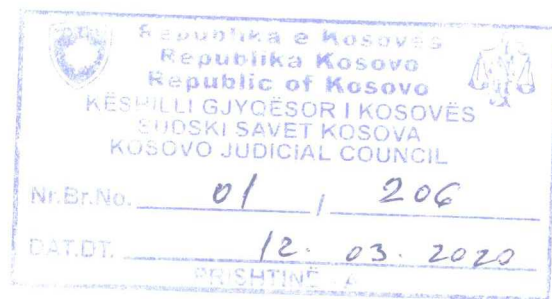 Republika e Kosovës
Republika Kosovo
Republic of Kosovo
KËSHILLI GJYQËSOR I KOSOVËS
SUDSKI SAVET KOSOVA
KOSOVO JUDICIAL COUNCIL
Nr.Br.No. 01 / 206
DAT.DT. 12. 03. 2020
PRISHTINË - A